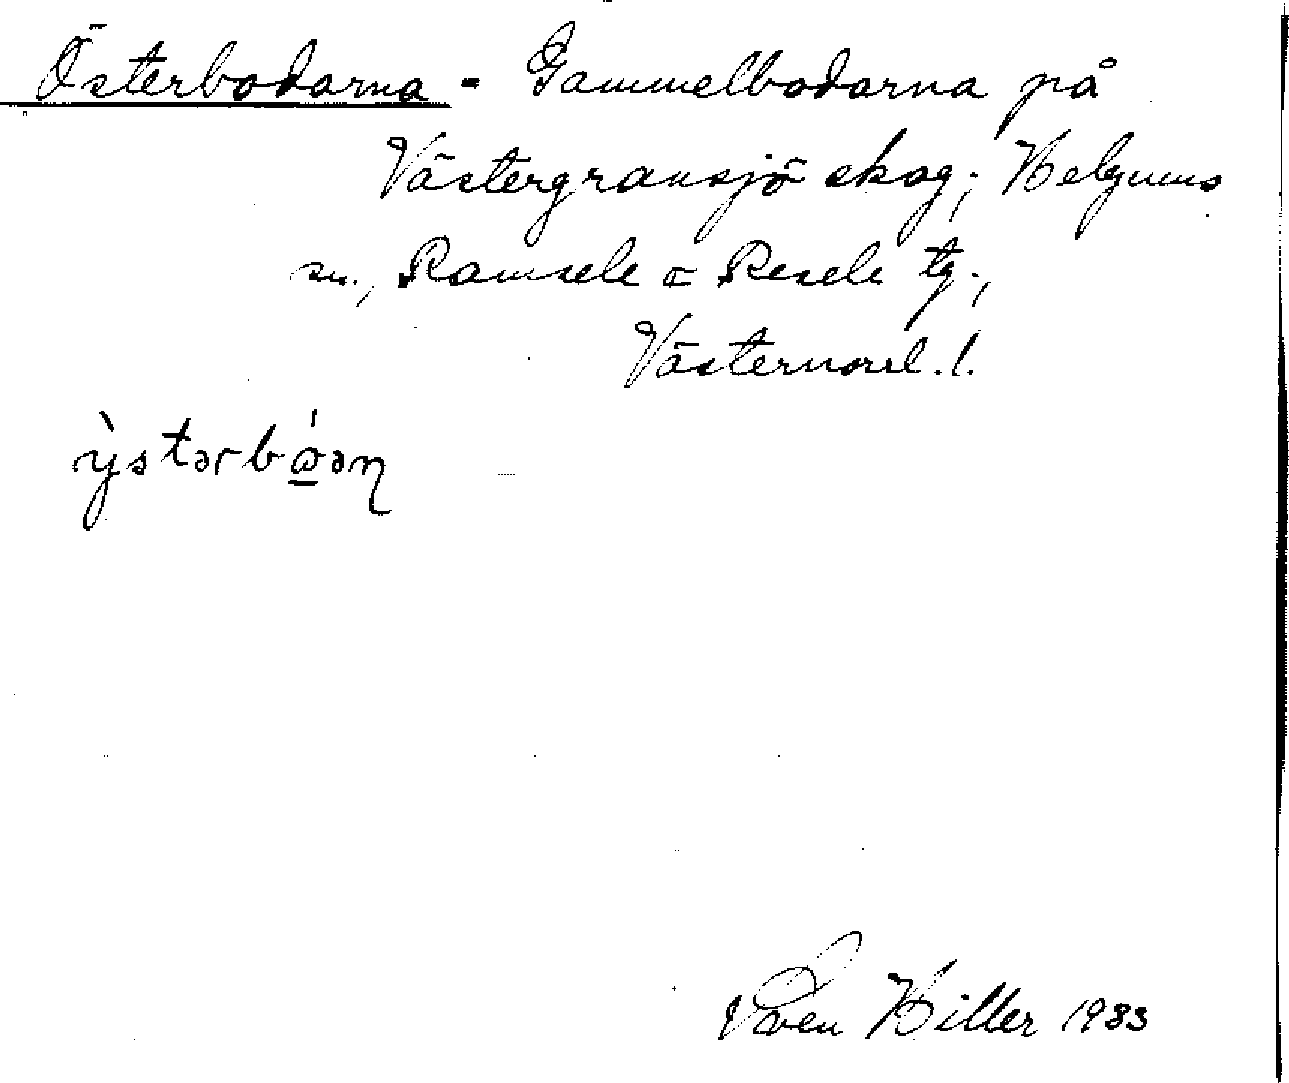 Österbodarna = Gammelbodarna på
Västergransjö skog; Helgums
sn., Ramsele o Resele tg.,
Västernorrl. l.
ỳstərbǿən
Sven Hiller 1933